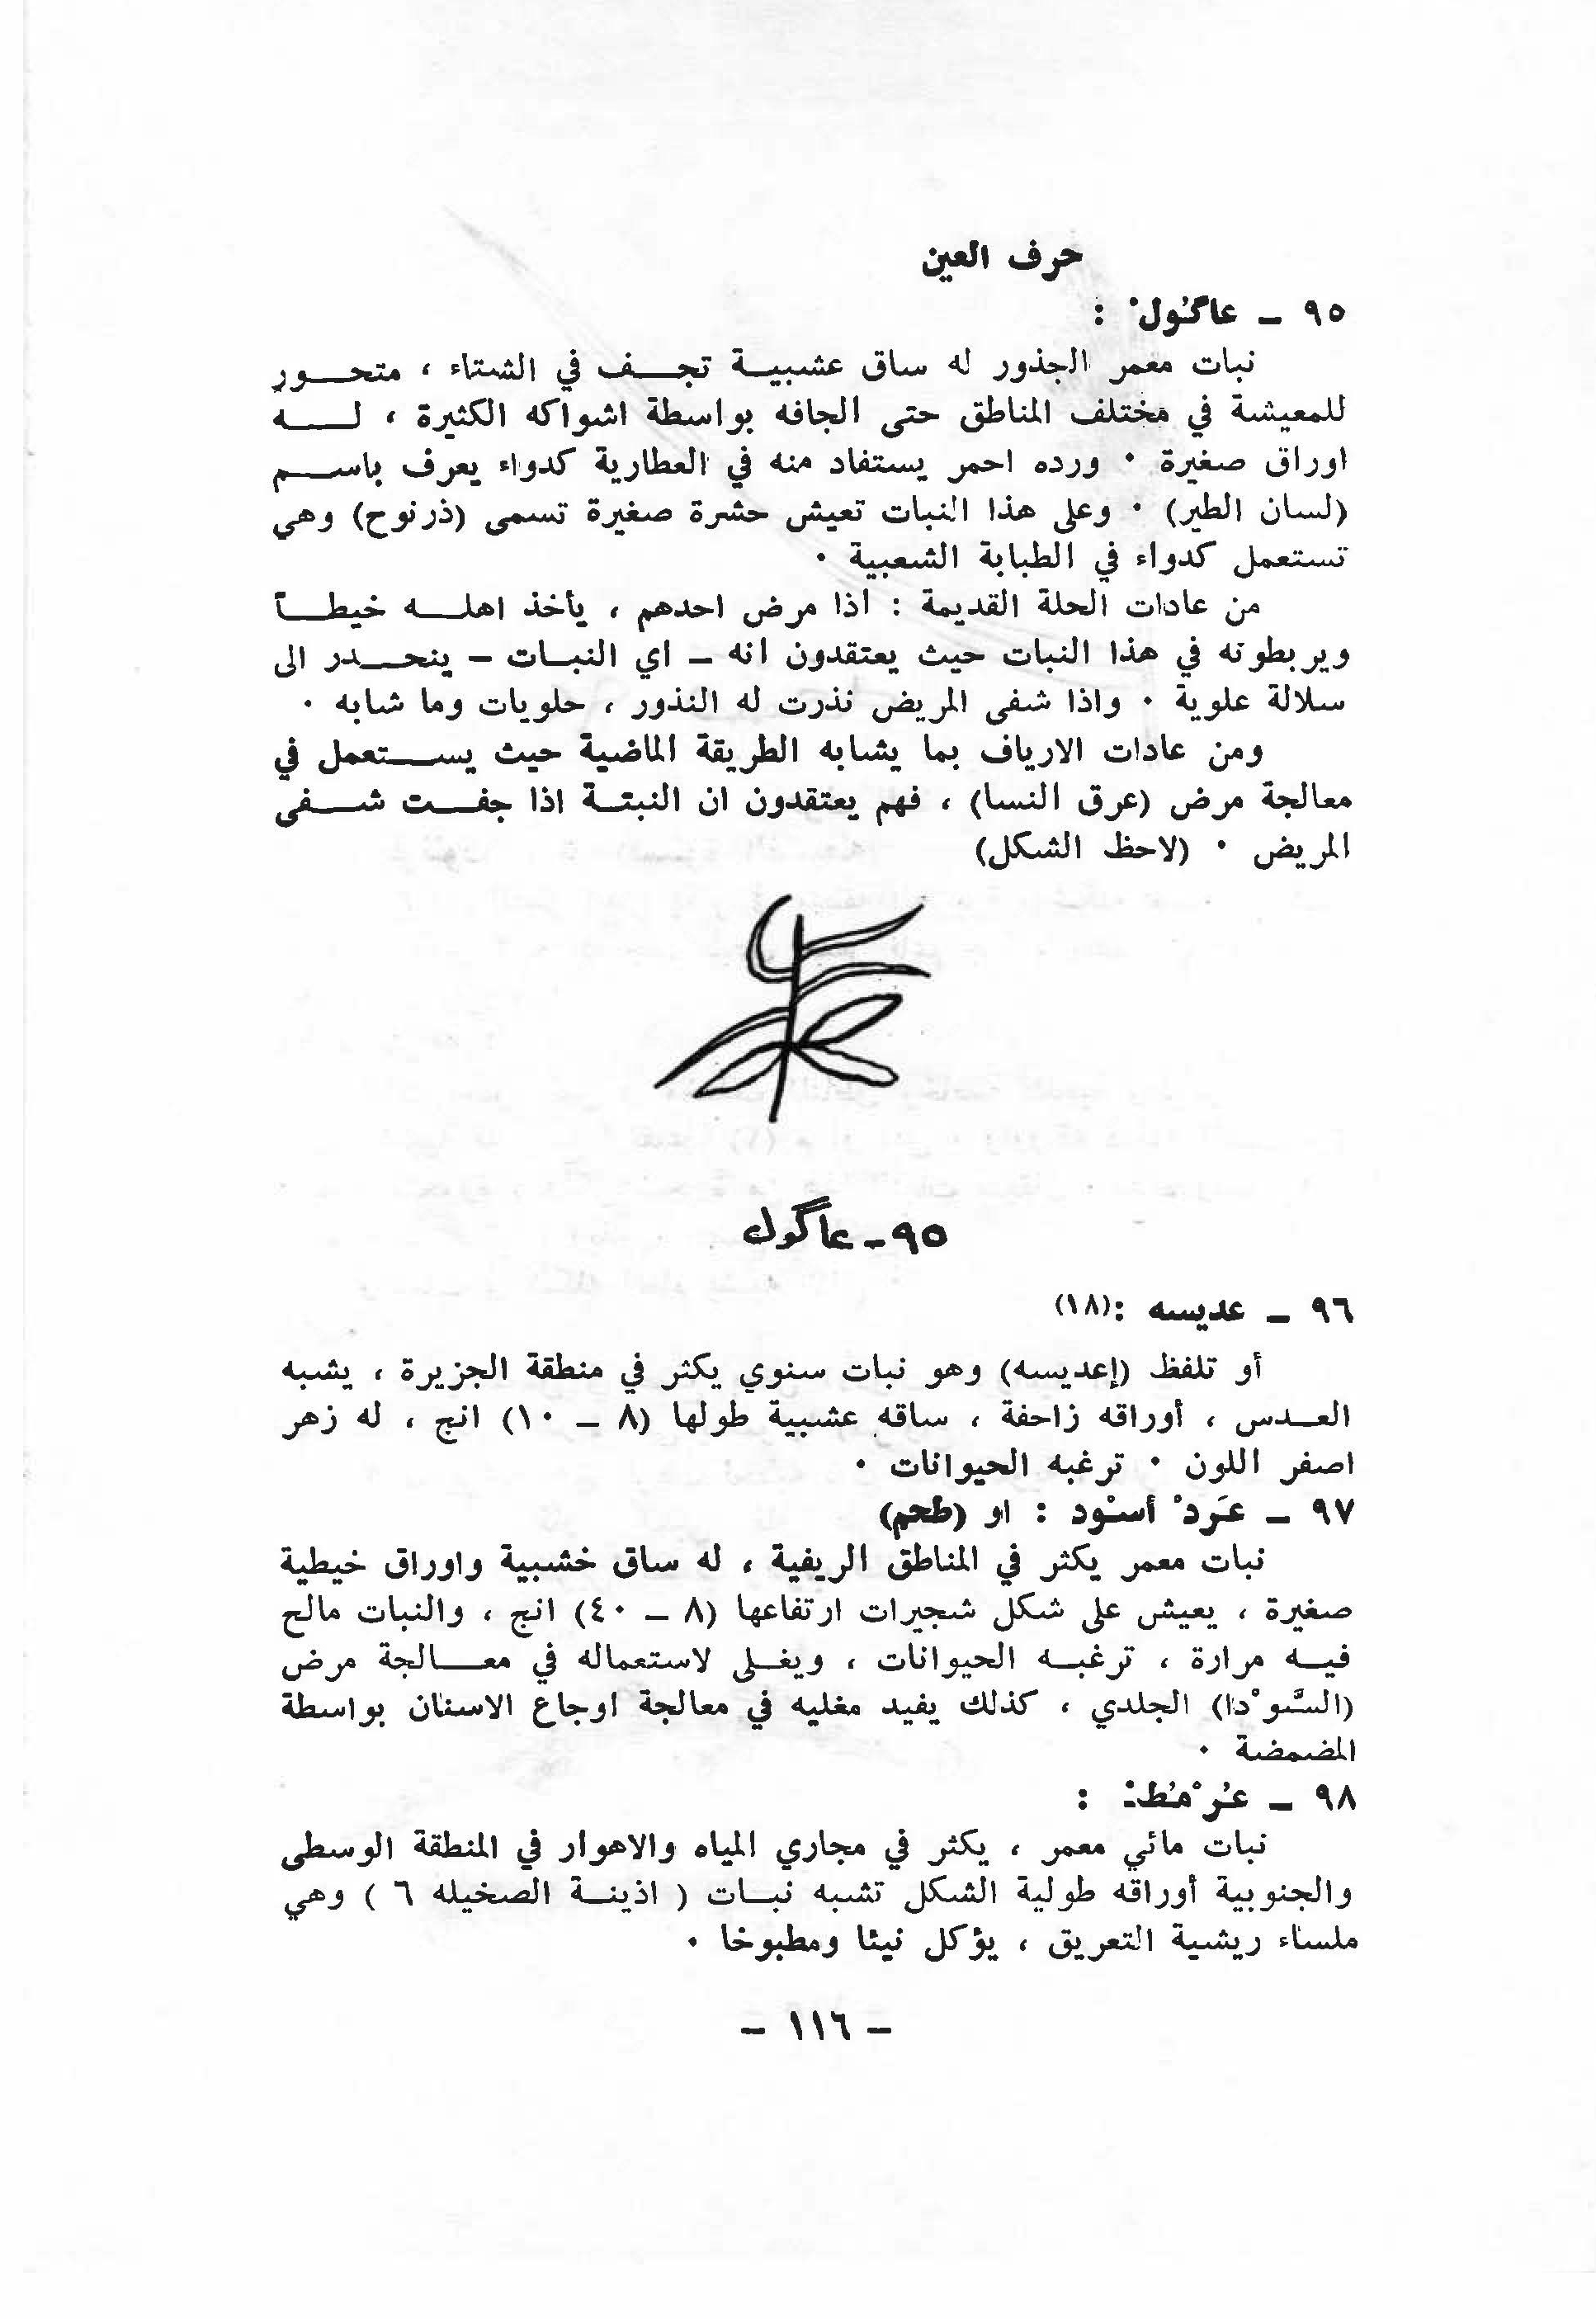 حرف العين
٩٥ ــ عاگُولْ :
نبات معمر الجذور له ساق عشبية تجف في الشتاء ، متحور
للمعيشة في مختلف المناطق حتى الجافه بواسطة اشواكه الكثيرة ، له
اوراق صغيرة ٠ ورده احمر يستفاد منه في العطارية كدواء يعرف باسم
(لسان الطير) ٠ وعلى هذا النبات تعيش حشرة صغيرة تسمى (ذرنوح) وهي
تستعمل كدواء في الطبابة الشعبية ٠
من عادات الحلة القديمة : اذا مرض احدهم ، يأخذ اهله خيطاً
ويربطونه في هذا النبات حيث يعتقدون انه ــ اي النبات ــ ينحدر الى
سلالة علوية ٠ واذا شفى المريض نذرت له النذور ، حلويات وما شابه ٠
ومن عادات الارياف بما يشابه الطريقة الماضية حيث يستعمل في
معالجة مرض (عرق النسا) ، فهم يعتقدون ان النبتة اذا جفت شفى
المريض ٠ (لاحظ الشكل)
٩٥ - عاگول
٩٦ ــ عديسه :(١٨)
أو تلفظ (إعديسه) وهو نبات سنوي يكثر في منطقة الجزيرة ، يشبه
العدس ، أوراقه زاحفة ، ساقه عشبية طولها (٨ ــ ١٠) انج ، له زهر
اصفر اللون ٠ ترغبه الحيوانات ٠
٩٧ ــ عَردْ أسْود : او (طحم)
نبات معمر يكثر في المناطق الريفية ، له ساق خشبية واوراق خيطية
صغيرة ، يعيش على شكل شجيرات ارتفاعها (٨ ــ ٤٠) انج ، والنبات مالح
فيه مرارة ، ترغبه الحيوانات ، ويغلى لاستعماله في معالجة مرض
(السَّوْدا) الجلدي ، كذلك يفيد مغليه في معالجة اوجاع الاسنان بواسطة
المضمضة ٠
٩٨ ــ عُرْمُطْ :
نبات مائي معمر ، يكثر في مجاري المياه والاهوار في المنطقة الوسطى
والجنوبية أوراقه طولية الشكل تشبه نبات ( اذينة الصخيله ٦ ) وهي
ملساء ريشية التعريق ، يؤكل نيئا ومطبوخا ٠
– ١١٦ –